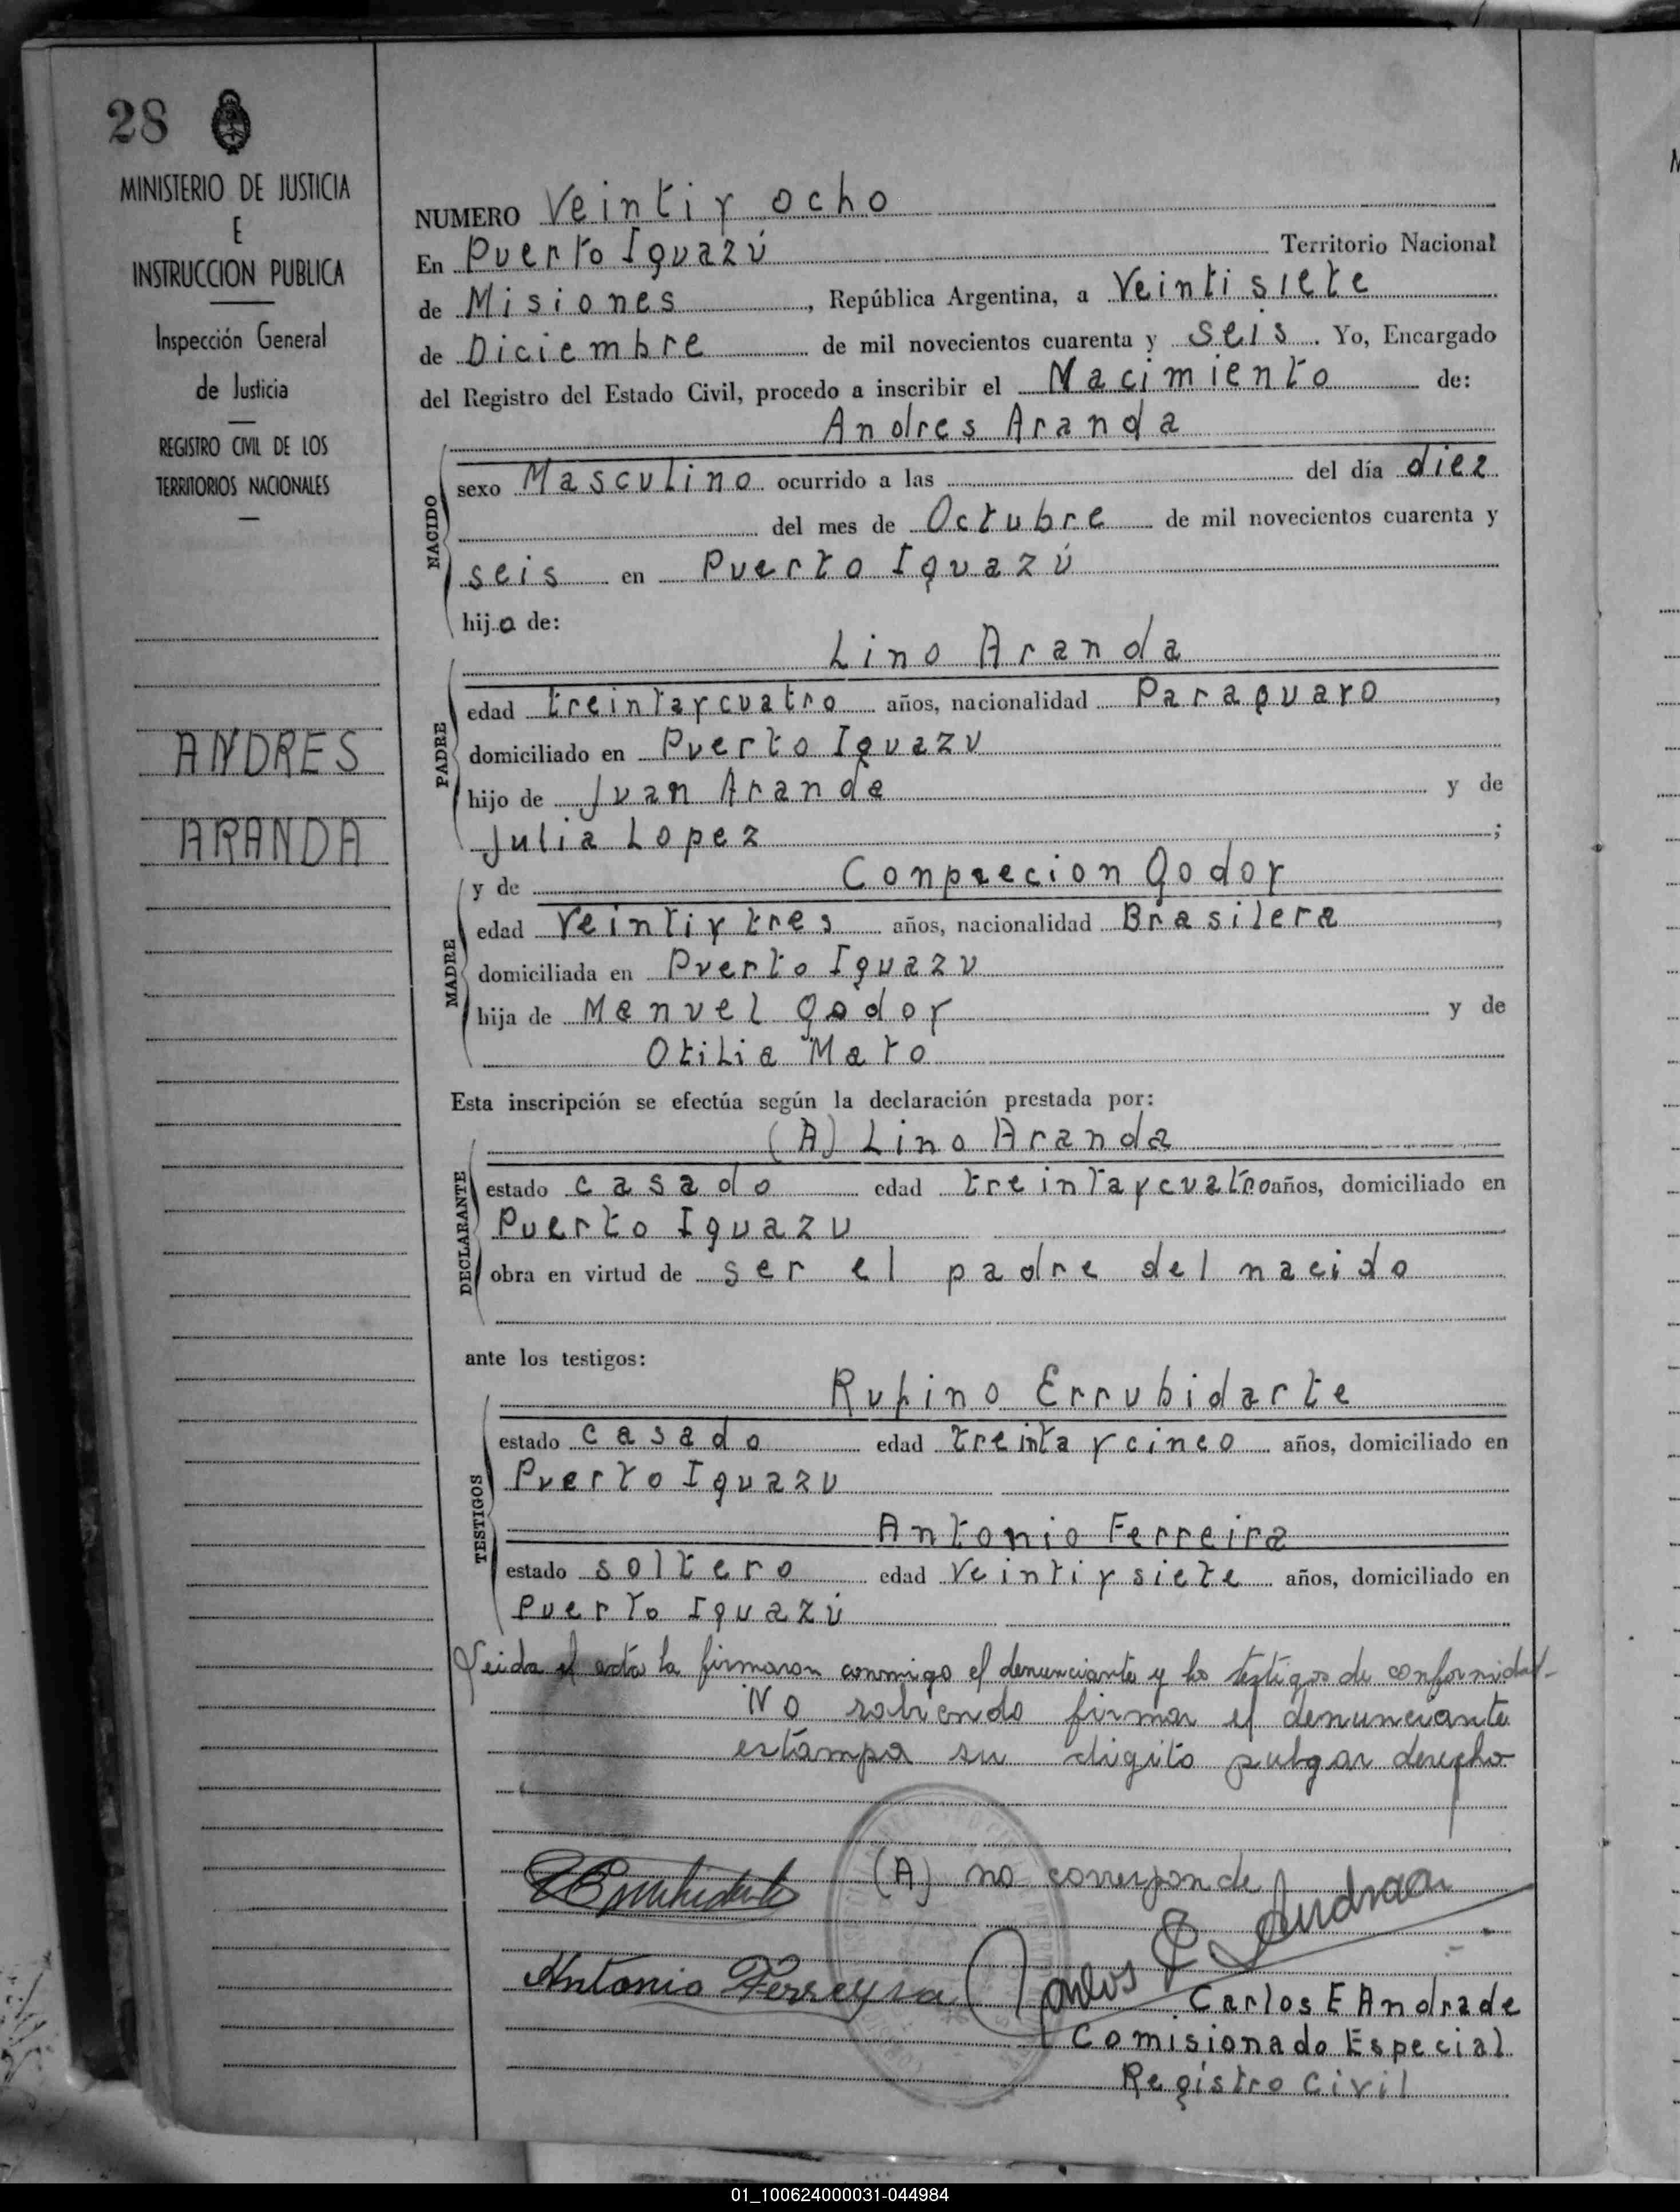 28
MINISTERIO DE JUSTICIA
E
INSTRUCCION PUBLICA
Inspección General
de Justicia
REGISTRO CIVIL DE LOS
TERRITORIOS NACIONALES
ANDRES
ARANDA
NUMERO Veinti y ocho
En Puerto Iguazú Territorio Nacional
de Misiones, República Argentina, a Veinti siete
de Diciembre de mil novecientos cuarenta y seis. Yo, Encargado
del Registro del Estado Civil, procedo a inscribir el Nacimiento de:
Andres Aranda
NACIDO
sexo Masculino ocurrido a las del día diez
del mes de Octubre de mil novecientos cuarenta y
seis en Puerto Iguazú
hijo de:
Lino Aranda
PADRE
edad treinta y cuatro años, nacionalidad Paraguayo,
domiciliado en Puerto Iguazu
hijo de Juan Aranda y de
Julia Lopez;
y de Conprecion Godoy
MADRE
edad Veinti y tres años, nacionalidad Brasilera,
domiciliada en Puerto Iguazu
hija de Manuel Godoy y de
Otilia Mato
Esta inscripción se efectúa según la declaración prestada por:
(A) Lino Aranda
DECLARANTE
estado casado edad treinta y cuatro años, domiciliado en
Puerto Iguazu
obra en virtud de ser el padre del nacido
ante los testigos:
Rufino Errubidarte
TESTIGOS
estado casado edad treinta y cinco años, domiciliado en
Puerto Iguazu
Antonio Ferreira
estado soltero edad Veinti y siete años, domiciliado en
Puerto Iguazú
Leida el acta la firmaron conmigo el denunciante y los testigos de conformidad-
No sabiendo firmar el denunciante
estampa su digito pulgar derecho
(A) no corresponde
Antonio Ferreyra
Carlos E Andrade
Carlos E Andrade
Comisionado Especial
Registro Civil
01_100624000031-044984